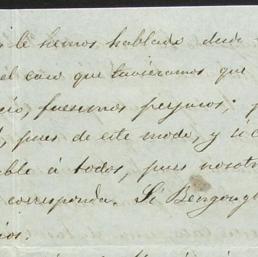 le hemos hablado desde
el caso que tuvieramos que
fuesemos perjuros;
pues de este modo, y
á todos, pues nosotr
corresponda. Si Bengough